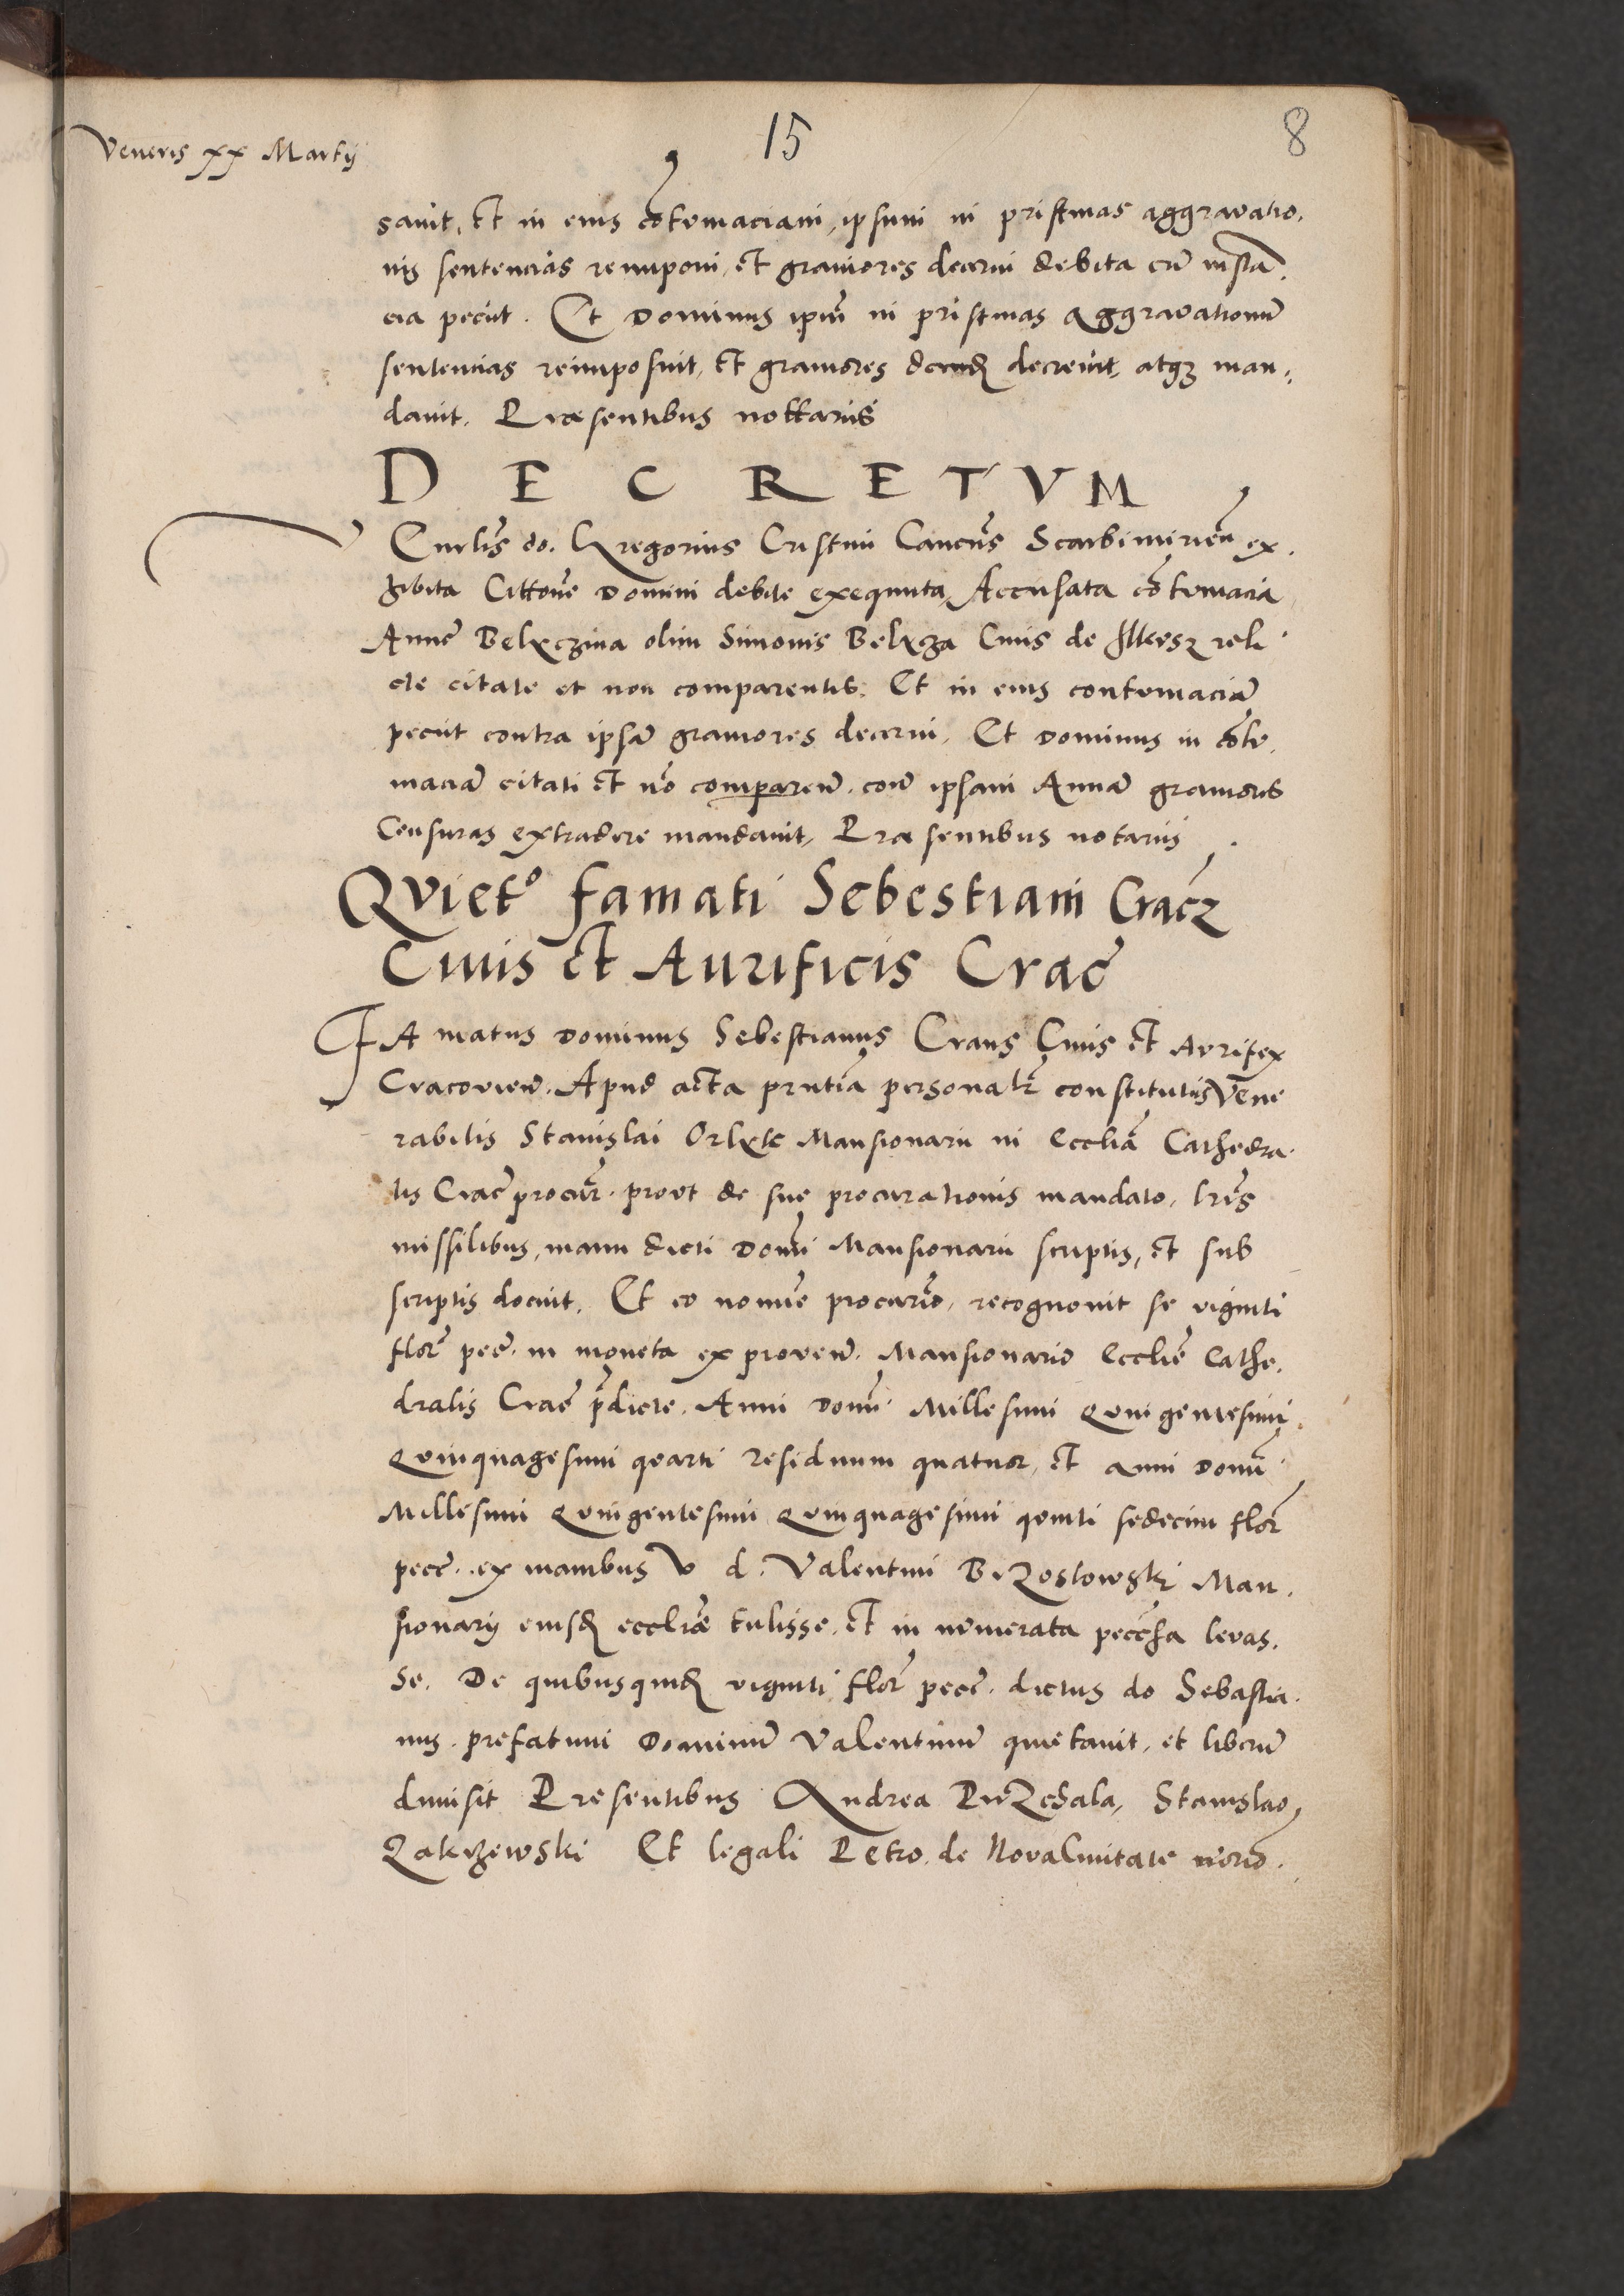 Veneris xx Martij
15
8
savit, et in eius cõtumaciam, ipsum in pristinas aggravatio.
nis sentencias reimponi, et graviores decerni debita cũ instã.
cia peciit. Et Dominus ipm̃ in pristinas Aggravationũ
sentencias reimposuit, et graviores decreuit, atq₃ man:
davit. Præsentibus nottariis
DECRETVM
do. Gregorius Cristini Canc̃us Scarbimirieñ ex.
hibita Citt̃one Domini debite exequuta, Accusata cõtumacia
Anne Belxczina olim Simonis Belxcza Ciuis de reli
cte citate et non comparentis. Et in eius contumaciã
peciit contra ipsã graviores decerni. Et Dominus in cõtu.
maciã citati et nõ compareñ. coñ ipsam Annã graviores
Censuras extradere mandauit, Præsentibus notariis
Qviet° famati Sebestiani Cracz
Ciuis et Aurificis Crac̃
FA matus Dominus Sebestianus Crans Ciuis et Avrifex
Cracovieñ. Apud acta pñtia personalr̃ constitutus Vene
rabilis Stanislai Orlxk Mansionarii in Eccliã Cathedra.
lis Crac̃ procũr. provt de sue procurationis mandato, lr̃is
missilibus, manu dicti Domĩ Mansionarii scriptis, et sub
scriptis docuit. Et eo nomĩe procur̃io, recognouit se viginti
flor̃ pec̃. in moneta ex proveñ. Mansionariõ Ecclĩe Cathe.
dralis Crac̃ p̃dicte. Anni Domĩ Millesimi Quingentesimi
Quinquagesimi qvarti residuum quatuor, et anni Domĩ
Millesimi Quingentesimi Quinquagesimi qvinti sedecim flor̃
pec̃. ex manibus V d. Valentini Brzostowski Man.
sionarij eiusd̃ ecclĩæ tulisse, et in nvmerata pec̃ia levas.
se. De quibusquid̃ viginti flor̃ pec̃. dictus do Sebastia.
nus. prefatum Dominũ Valentinũ quietauit, et liberũ
dimisit Presentibus Andrea Stanislao
Zakrzewski Et legali Petro de Nova Ciuitate